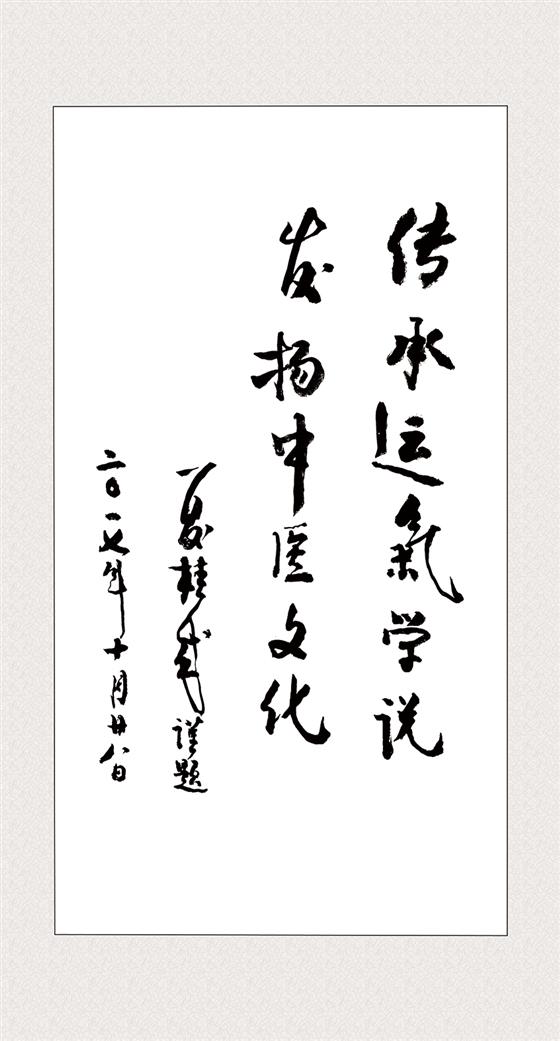 传承运氣学说
发扬中医文化
夏桂成谨题
二〇一七年十月廿八日